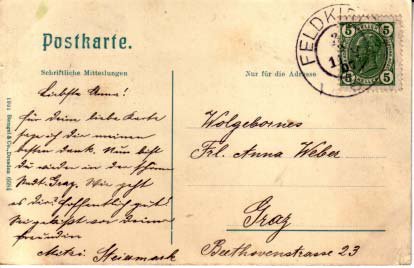 Postkarte.
Schriftliche Mitteilungen
Nur für die Adresse
FELDKIR
5 5
5 5
Liebste Anna!
Für deine liebe Karte
sage ich dir meinen
besten Dank. Nun bist
du wieder in der schönen
Stadt Graz. Wie geht
es dir? Hoffentlich gut!
Es grüßt dich Deine
Freundin
Mitzi Steinmark
Wolgebornes
Frl. Anna Weber
Graz
Beethovenstrasse 23
1901 Stengel & Co., Dresden